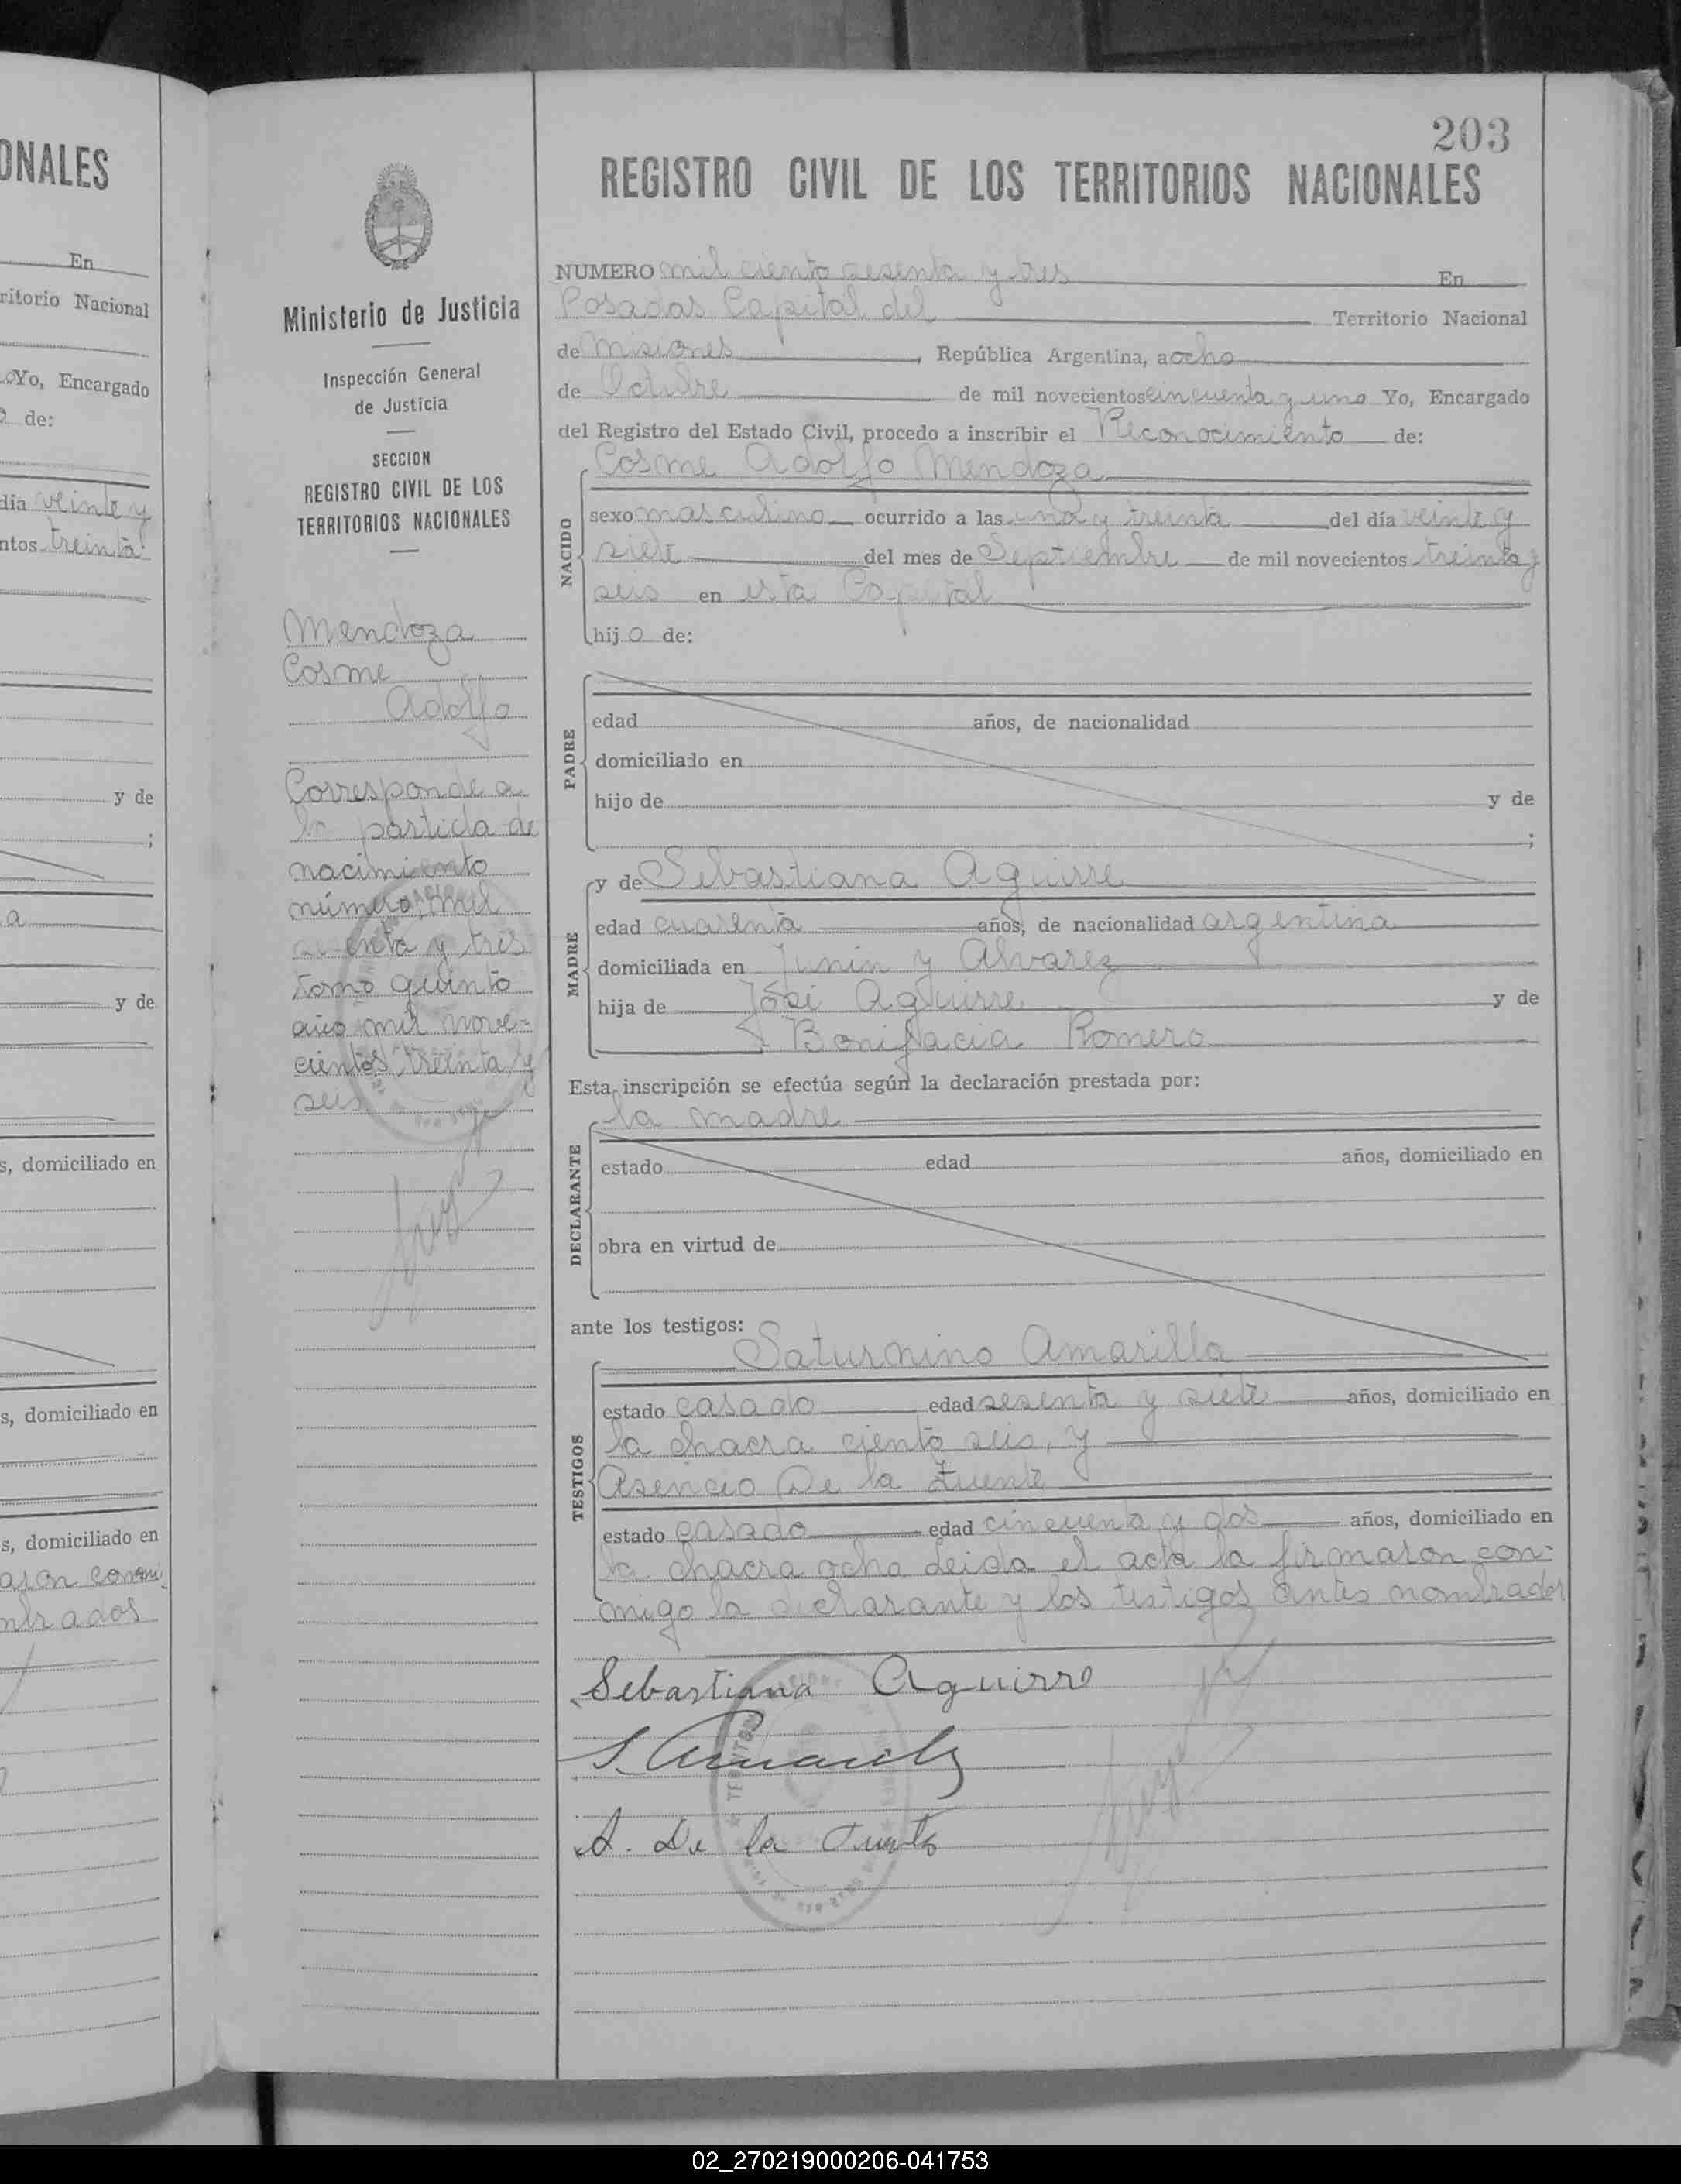 ONALES
En
ritorio Nacional
Yo, Encargado
de:
día veinte y
ntos treinta
y de
a
y de
s, domiciliado en
s, domiciliado en
s, domiciliado en
aron conmi
mbrados
Ministerio de Justicia
Inspección General
de Justicia
SECCION
REGISTRO CIVIL DE LOS
TERRITORIOS NACIONALES
Mendoza
Cosme
Adolfo
Corresponde a
la partida de
nacimiento
número mil
sesenta y tres
tomo quinto
año mil nove-
cientos treinta y
seis
203
REGISTRO CIVIL DE LOS TERRITORIOS NACIONALES
NUMERO mil ciento sesenta y tres En
Posadas Capital del Territorio Nacional
de Misiones, República Argentina, a ocho
de Octubre de mil novecientos cincuenta y uno Yo, Encargado
del Registro del Estado Civil, procedo a inscribir el Reconocimiento de:
Cosme Adolfo Mendoza
NACIDO
sexo masculino ocurrido a las una y treinta del día veinte y
siete del mes de Septiembre de mil novecientos treinta y
seis en esta Capital
hijo de:
PADRE
edad años, de nacionalidad
domiciliado en
hijo de y de
;
MADRE
y de Sebastiana Aguirre
edad cuarenta años, de nacionalidad argentina
domiciliada en Junin y Alvarez
hija de José Aguirre y de
Bonifacia Romero
Esta inscripción se efectúa según la declaración prestada por:
la madre
DECLARANTE
estado edad años, domiciliado en
obra en virtud de
ante los testigos:
Saturnino Amarilla
TESTIGOS
estado casado edad sesenta y siete años, domiciliado en
la chacra ciento seis, y
Asencio De la Fuente
estado casado edad cincuenta y dos años, domiciliado en
la chacra ocho Leida el acta la firmaron con-
migo la declarante y los testigos antes nombrados
Sebastiana Aguirre
S. Amarilla
A. De la Fuente
02_270219000206-041753